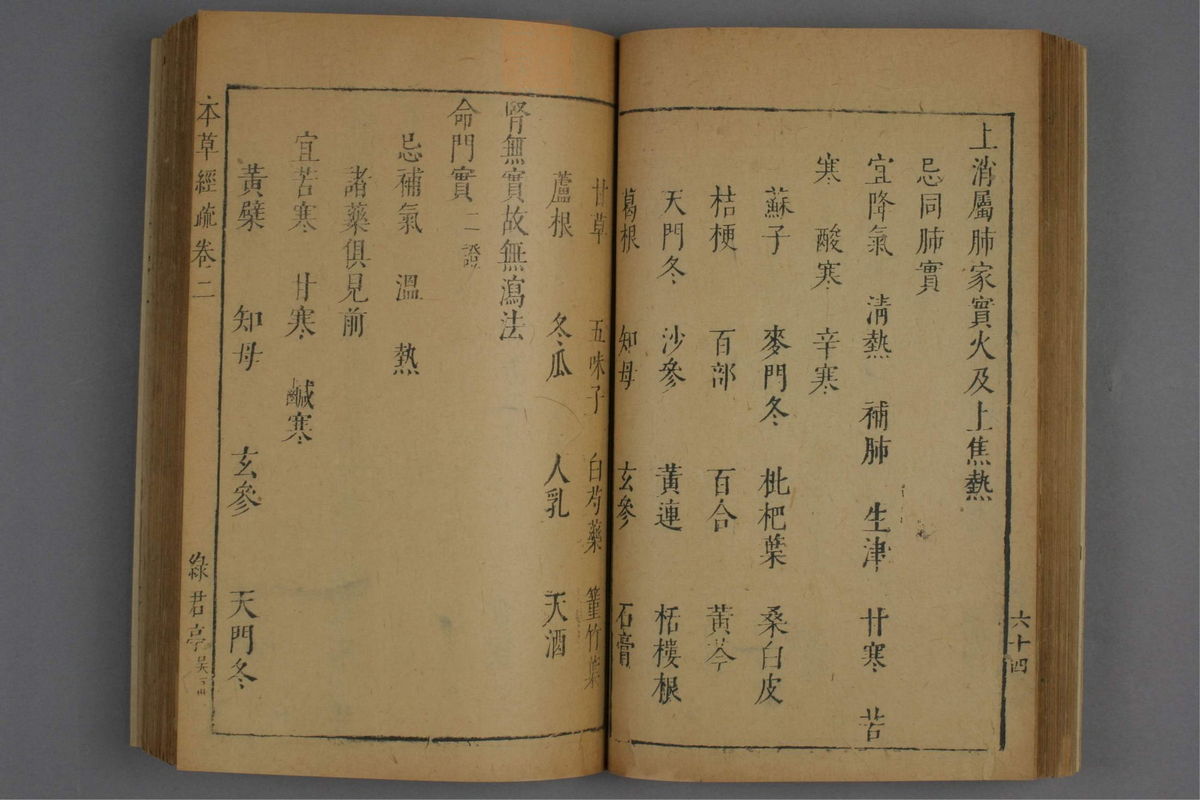 上消屬肺家實火及上焦熱
忌同肺實
宜降氣 清熱 補肺 生津 甘寒 苦
寒 酸寒 辛寒
蘇子 麥門冬 枇杷葉 桑白皮
桔梗 百部 百合 黃芩
天門冬 沙參 黃連 栝樓根
葛根 知母 玄參 石膏
六十四
甘草 五味子 白芍藥 篁竹葉
蘆根 冬瓜 人乳 天酒
腎無實故無瀉法
命門實二證
忌補氣 溫 熱
諸藥俱見前
宜苦寒 甘寒 鹹寒
黃檗 知母 玄參 天門冬
本草經疏卷二 綠君亭 吳